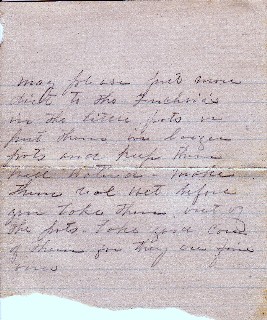 may please put some
dirt to the Fuchsia's
in the little pots or
put them in larger
pots and keep them
well watered. make
them real wet before
you take them out of
the pots. Take good care
of them for they are fine
ones